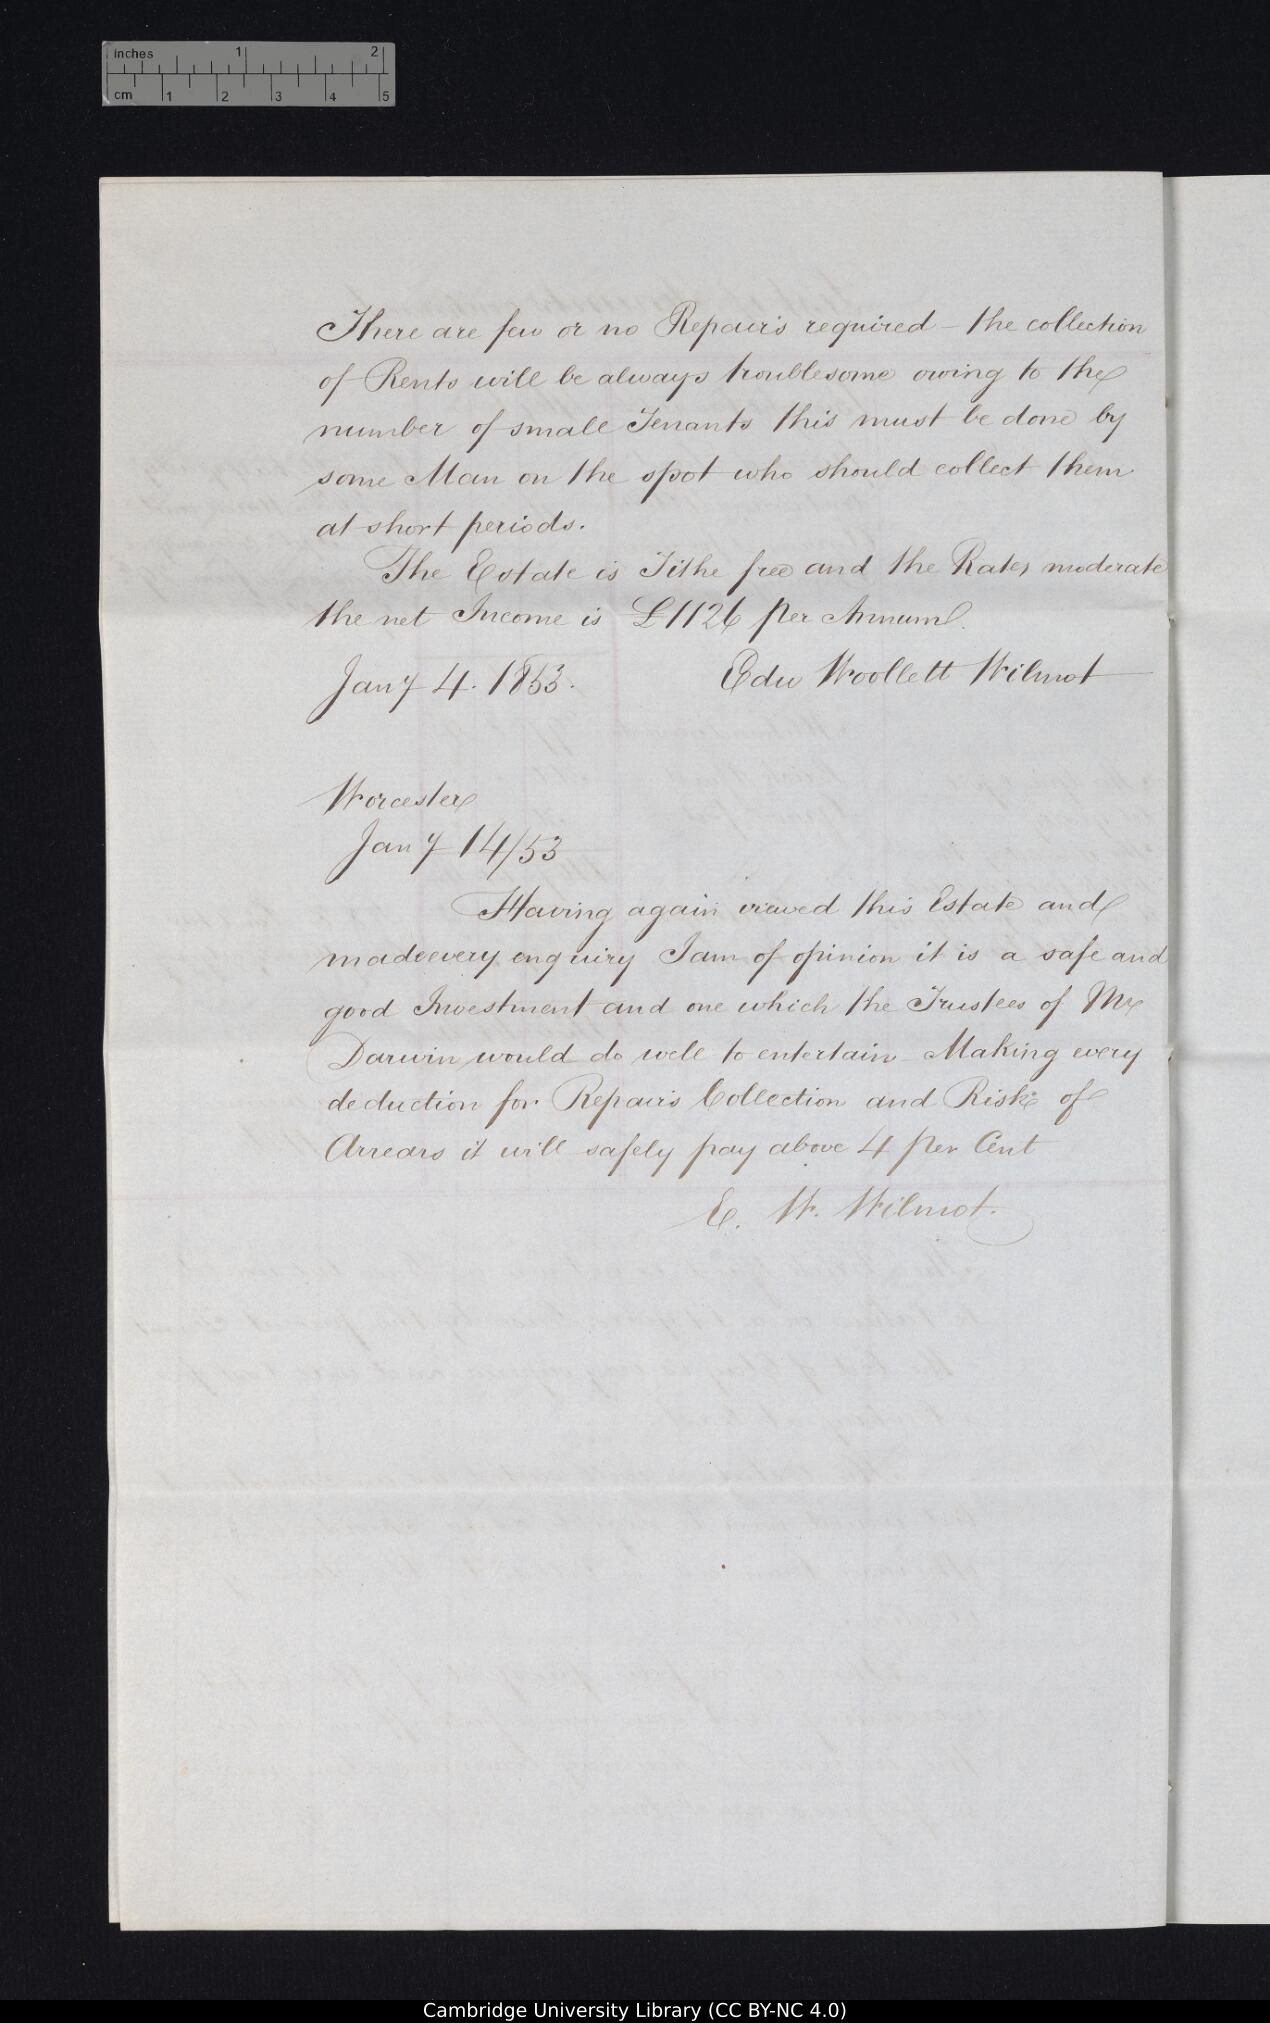 inches 1 2
cm 1 2 3 4 5
There are few or no Repairs required – the collection
of Rents will be always troublesome owing to the
number of small Tenants this must be done by
some Man on the spot who should collect them
at short periods.
The Estate is Tithe free and the Rates moderate
the net Income is £1126 per Annum.
Jany 4. 1853. Edw Woollett Wilmot
Worcester
Jany 14/53
Having again viewed this Estate and
made every enquiry I am of opinion it is a safe and
good Investment and one which the Trustees of Mr
Darwin would do well to entertain – Making every
deduction for Repairs Collection and Risk of
Arrears it will safely pay above 4 per Cent
E. W. Wilmot.
Cambridge University Library (CC BY-NC 4.0)